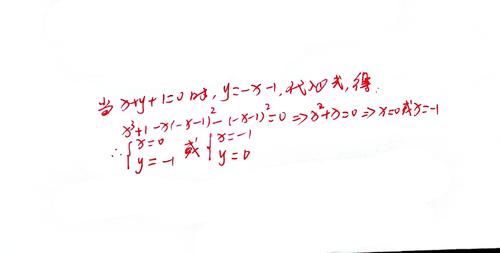 当 x+y+1=0时, y=-x-1, 代入④式, 得:
x³+1-x(-x-1)²-(-x-1)²=0 => x²+x=0 => x=0或x=-1
∴ { x=0 或 { x=-1
y=-1 y=0